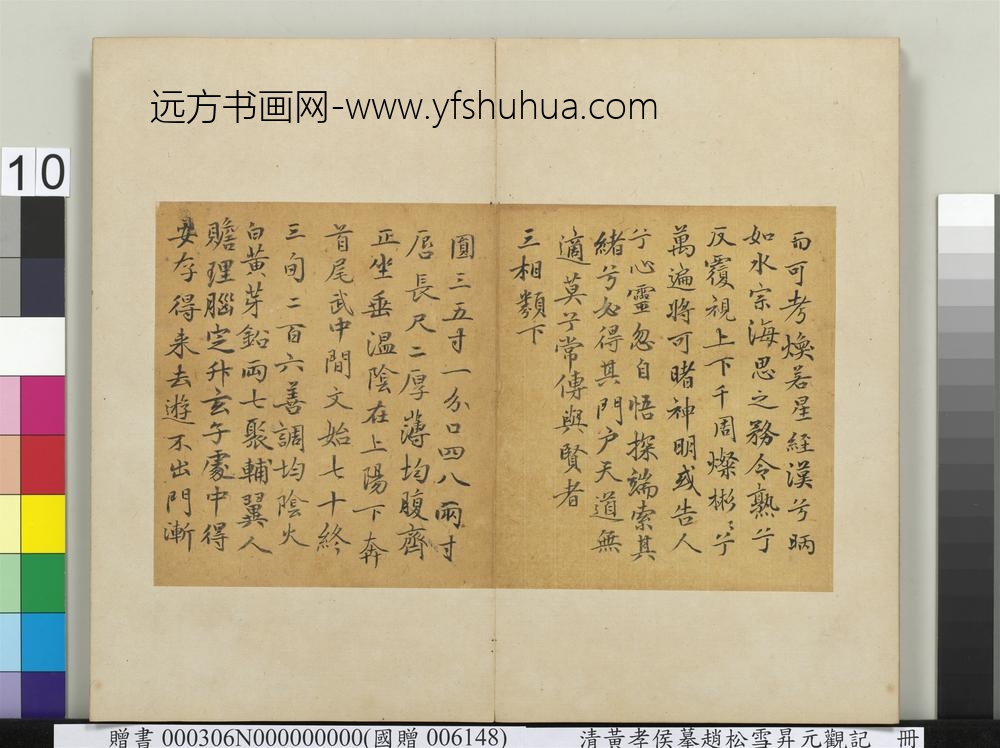 远方书画网-www.yfshuhua.com
10
而可考煥若星經漢兮昞
如水宗海思之務令熟兮
反覆視上下千周燦彬彬兮
萬遍將可睹神明或告人
兮心靈忽自悟探端索其
緒兮必得其門户天道無
適莫兮常傳與賢者
三相類下
圓三五寸一分口四八兩寸
唇長尺二厚薄均腹齊
正坐垂温陰在上陽下奔
首尾武中間文始七十終
三旬二百六善調均陰火
白黄芽鉛兩七聚輔翼人
贍理腦定升玄子處中得
安存得来去遊不出門漸
贈書 000306N000000000(國贈 006148)
清黃孝侯摹趙松雪昇元觀記 冊